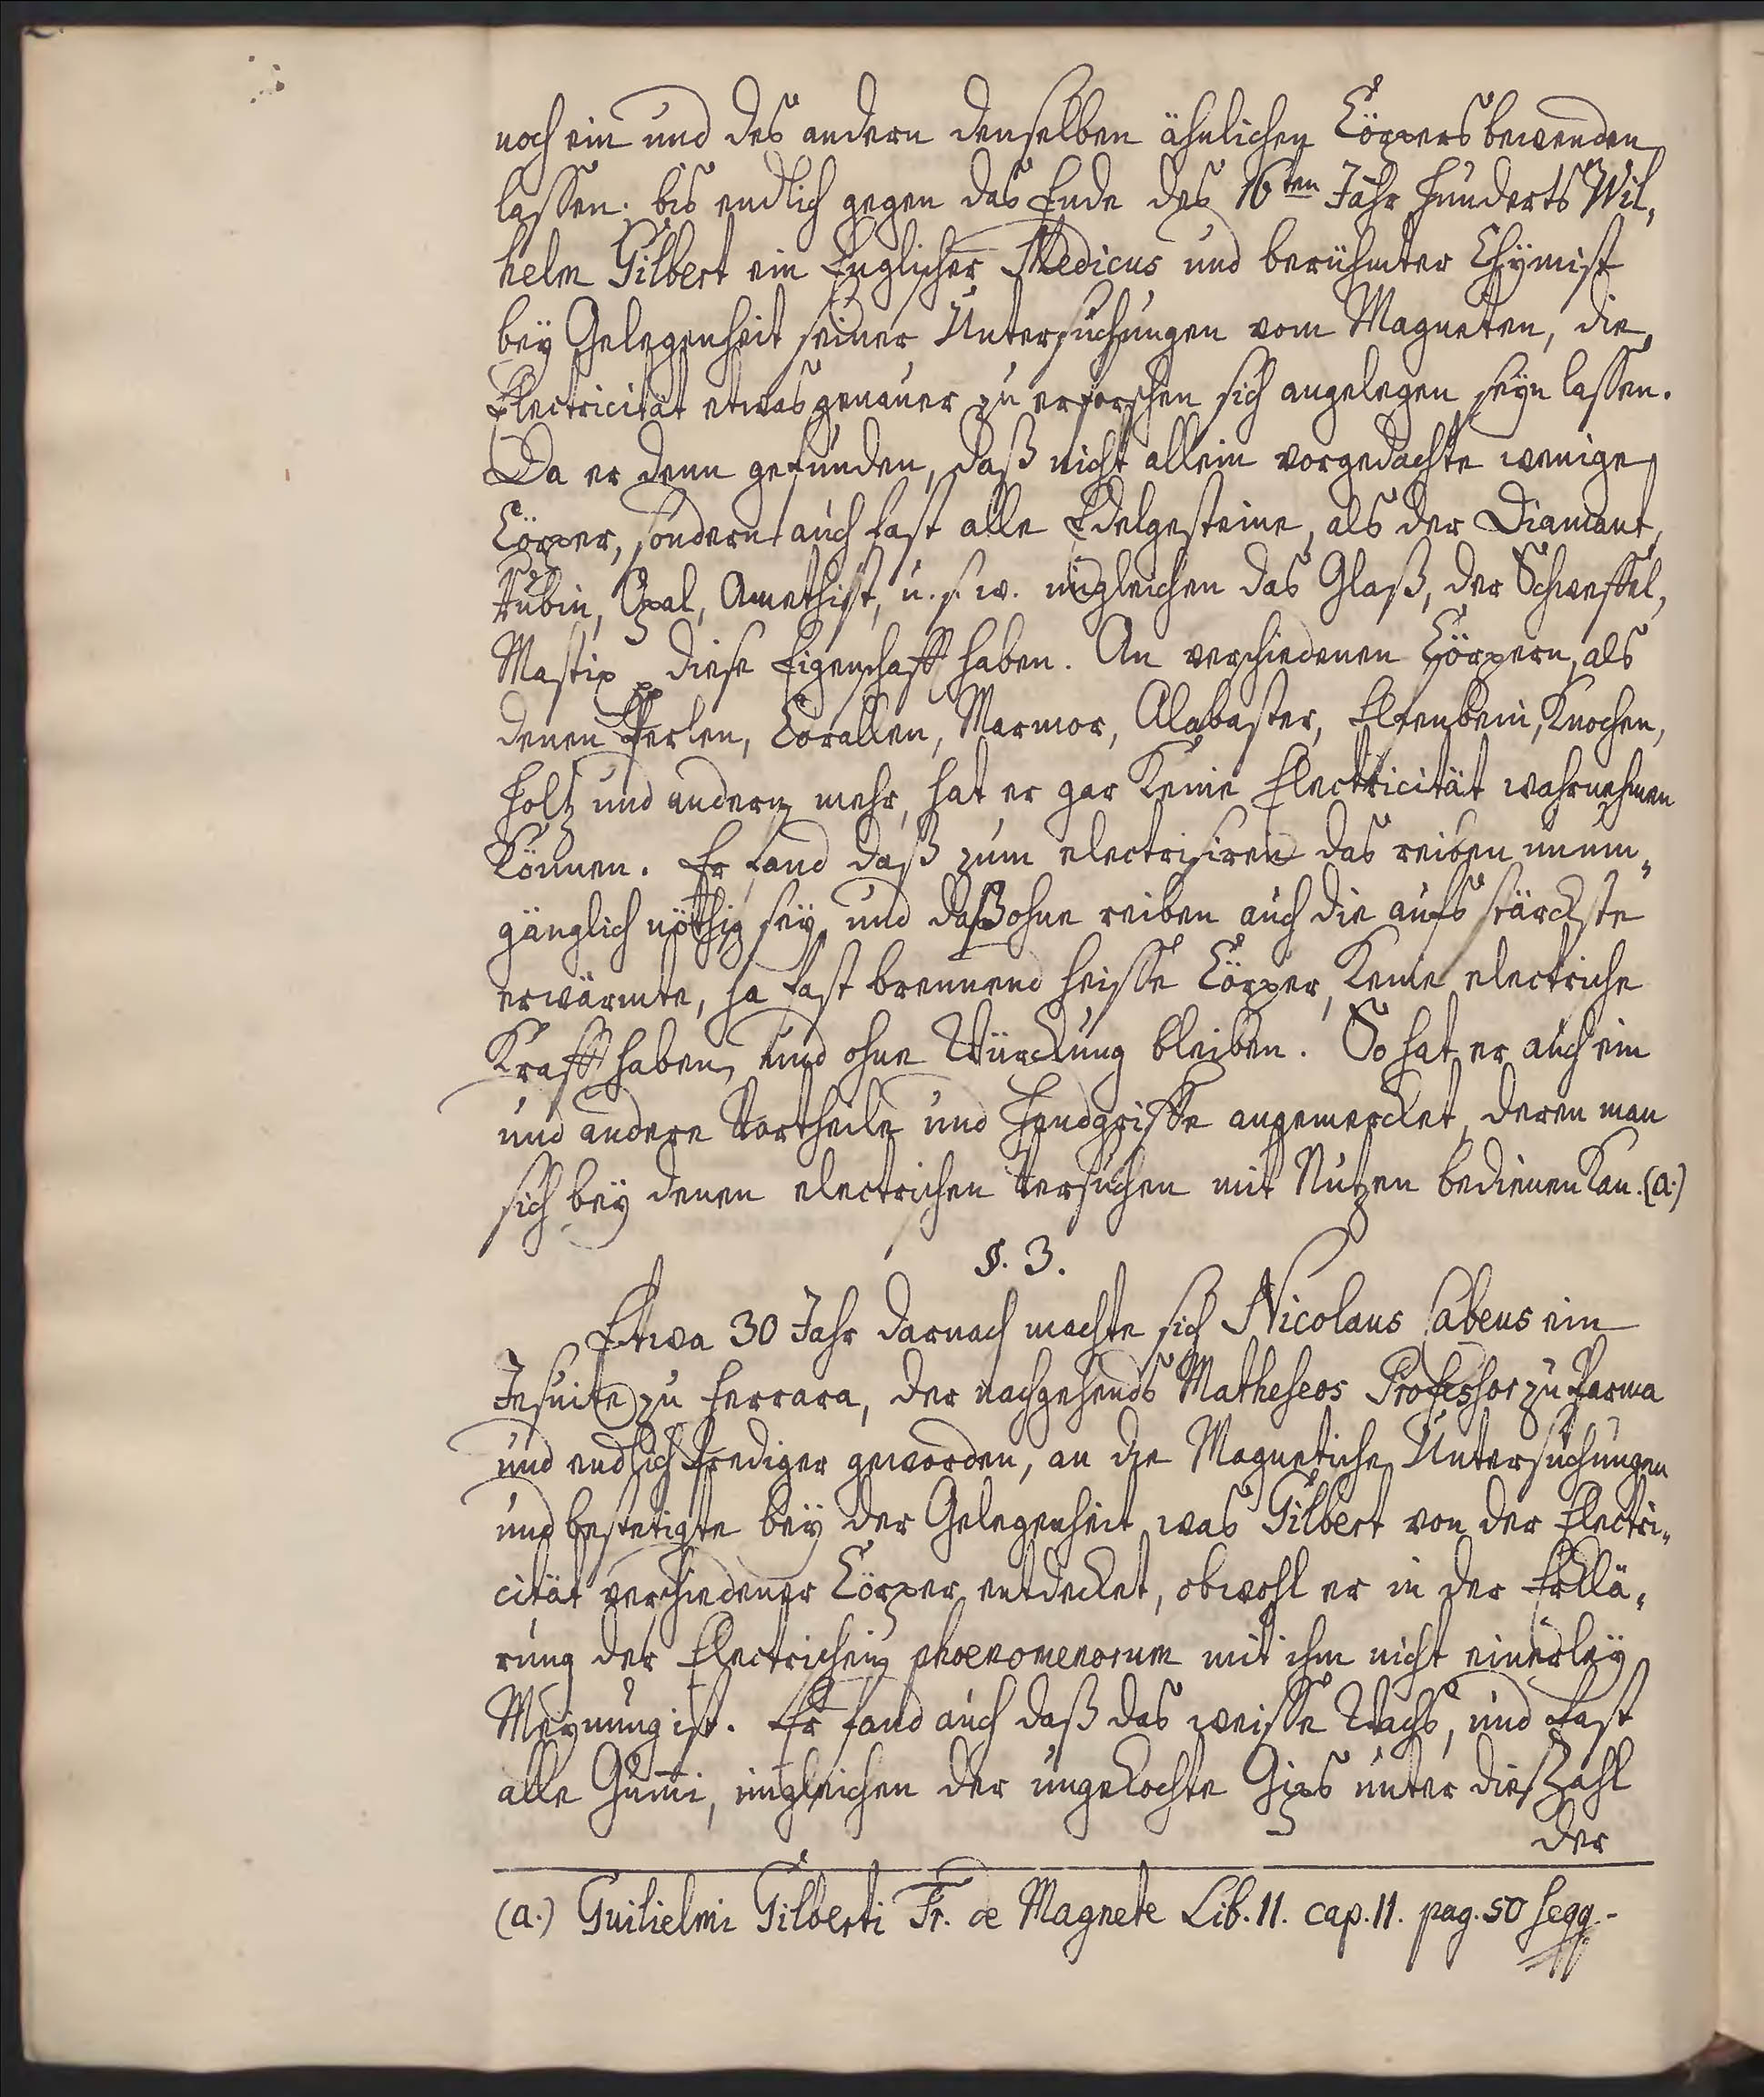 noch ein und des andern denselben ähnlichen Cörpers bewenden
lassen: bis endlich gegen das Ende des 16ten Jahr hunderts Wil,
helm Gilbert ein Englischer Medicus und berühmter Chÿmist
beÿ Gelegenheit seiner Untersuchungen vom Magneten, die
Electricität etwas genauer zu erforschen sich angelegen seÿn lassen.
Da er denn gefunden, daß nicht allein vorgedachte wenige
Cörper, sondern auch fast alle Edelgesteine, als der Diamant,
Rubin, Opal, Amethist, u. s. w. ingleichen das Glaß, der Schweffel,
Mastix pp diese Eigenschafft haben. An verschiedenen Cörpern, als
denen Perlen, Corallen, Marmor, Alabaster, Elfenbein, Knochen,
Holtz und andern mehr, hat er gar Keine Electricität wahrnehmen
Können. Er fand daß zum electrisiren das reiben unum„
gänglich nöthig seÿ, und daß ohne reiben auch die aufs stärckste
erwärmte, ja fast brennend heisse Cörper, Keine electriche
Krafft haben, und ohne Würckung bleiben. So hat er auch ein
und andere Vortheile und Handgriffe angemercket, deren man
sich beÿ denen electrichen Versuchen mit Nutzen bedienen Kan. (a.)
§. 3.
Etwa 30 Jahr darnach machte sich Nicolaus Cabeus ein
Jesuite zu Ferrara, der nachgehends Matheseos Professor zu Parma
und endlich Prediger geworden, an die Magnetiche Untersuchungen
und bestetigte beÿ der Gelegenheit was Gilbert von der Electri„
cität verschiedener Cörper entdecket, obwohl er in der Erklä„
rung der Electrichen phoenomenorum mit ihm nicht einerleÿ
Meÿnung ist. Er fand auch daß das weisse Wachs, und fast
alle Gum̅i, ingleichen der ungekochte Gips unter die Zahl
der
(a.) Guilielmi Gilberti Tr. de Magnete Lib. 11. cap. 11. pag. 50 seqq.